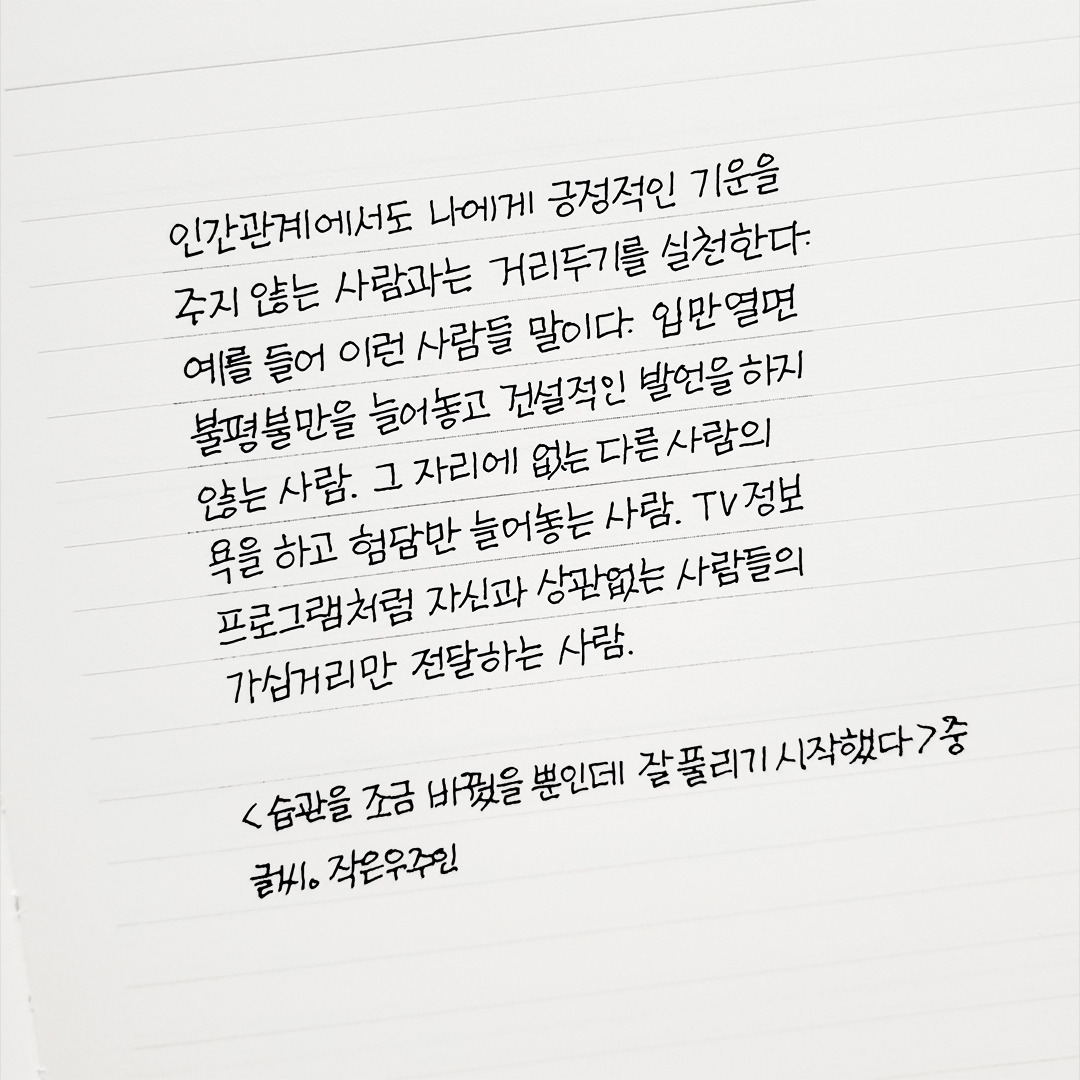 인간관계에서도 나에게 긍정적인 기운을
주지 않는 사람과는 거리두기를 실천한다.
예를 들어 이런 사람들 말이다. 입만 열면
불평불만을 늘어놓고 건설적인 발언을 하지
않는 사람. 그 자리에 없는 다른 사람의
욕을 하고 험담만 늘어놓는 사람. TV 정보
프로그램처럼 자신과 상관없는 사람들의
가십거리만 전달하는 사람.
<습관을 조금 바꿨을 뿐인데 잘 풀리기 시작했다> 중
글씨。작은우주인